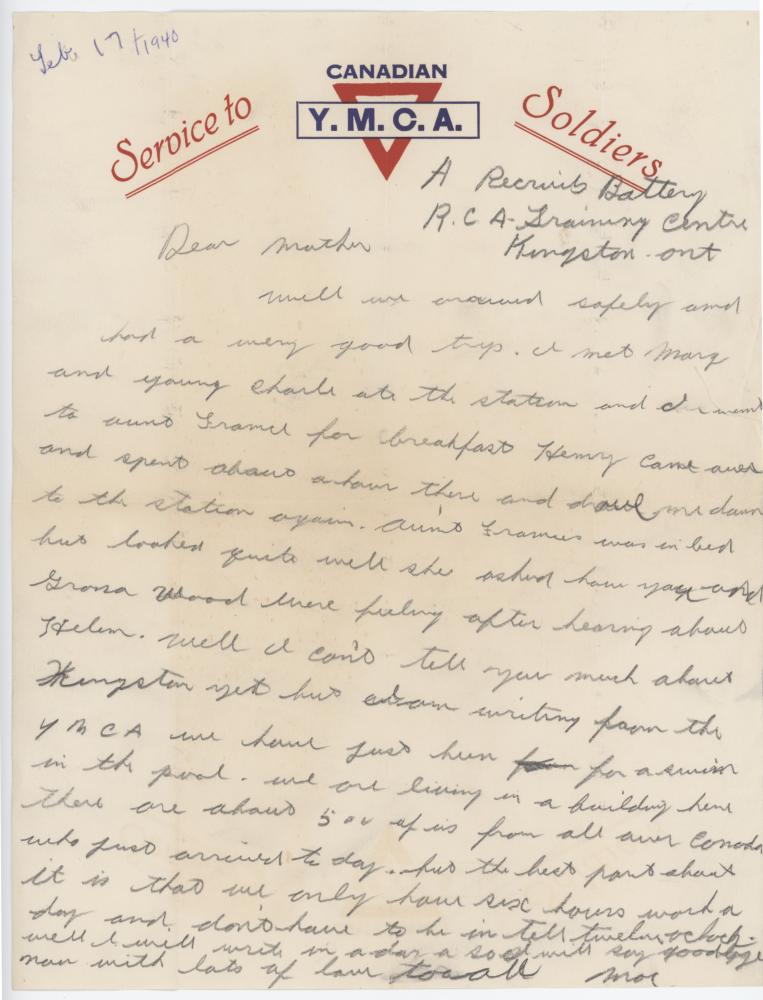 Feb. 17/1940
CANADIAN
Service to Y. M. C. A. Soldiers
A Recruits Battery
R.C.A. Training Centre
Kingston. ont
Dear Mother
well we arrived safely and
had a very good trip. I met Marg
and young Charle ate the station and I went
to aunt France for breakfast Henry came over
and spent about a hour there and drove me down
to the station again. Aunt Frances was in bed
but looked quite well she asked how you and
Wood were feeling after hearing about
Helen. well I can't tell you much about
Kingston yet but am writing from the
Y M C A we have just been for a swim
in the pool. we are living in a building here
there are about 500 of us from all over Canada
who just arrived to day. but the best part about
it is that we only have six hours work a
day and don't have to be in tell twelve o'clock.
well I will write in a day a so I will say goodbye
now with lots of love to all Moe